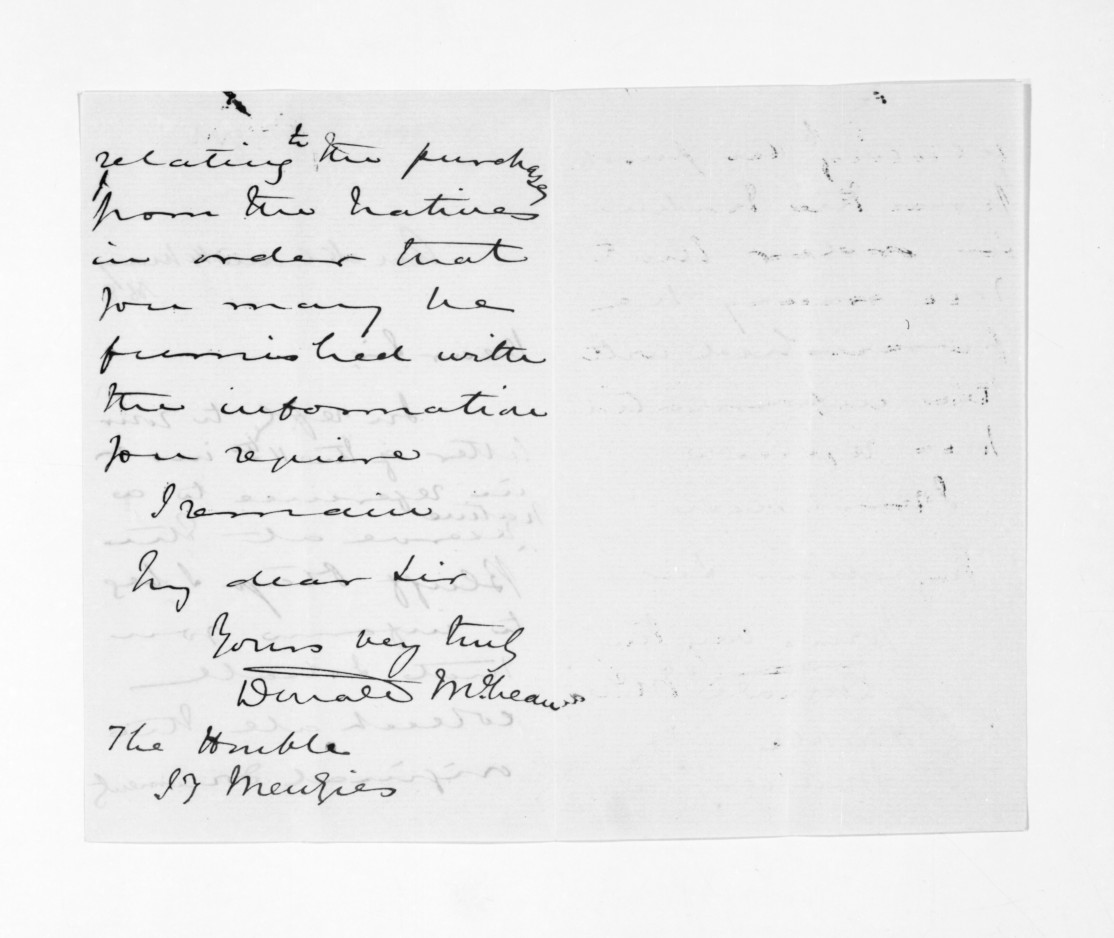 relating to the purchases
from the Natives
in order that
you may be
furnished with
the information
you require
I remain
My dear Sir
Yours very truly
Donald McLean
The Honble